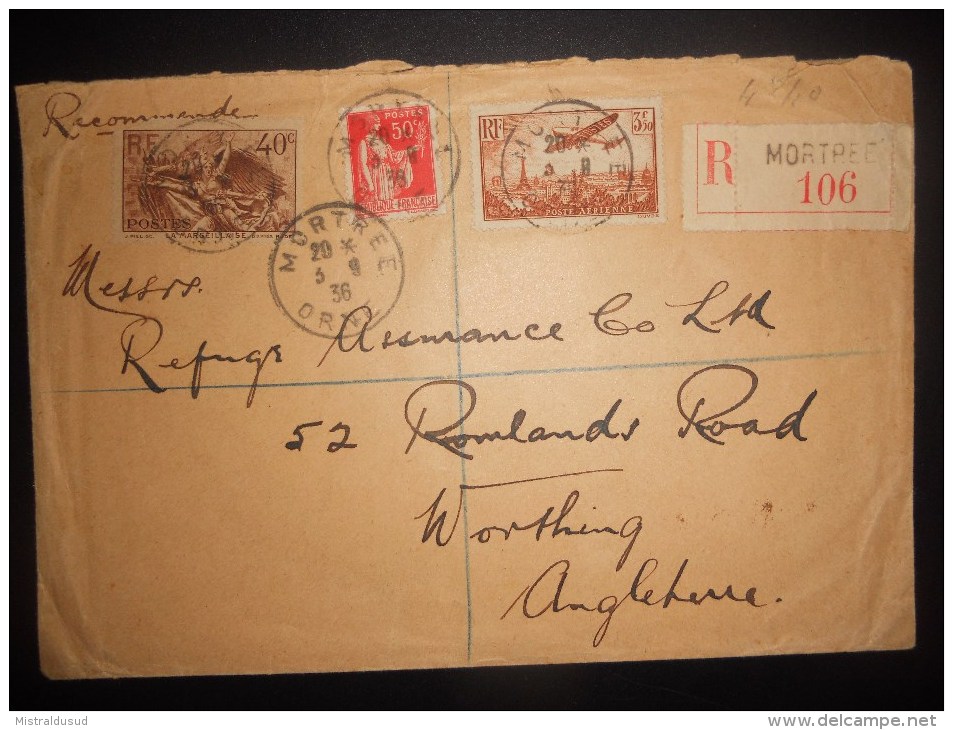 Recommende
RF 40c
POSTES
LA MARSEILLAISE
POSTES
50c
RF 3f50
POSTE AERIENNE
R MORTREE
106
MORTREE
20 *
5 9
36
ORNE
Messrs.
Refuge Assurance Co Ltd
52 Rowlands Road
Worthing
Angleterre.
Mistraldusud
www.delcampe.net